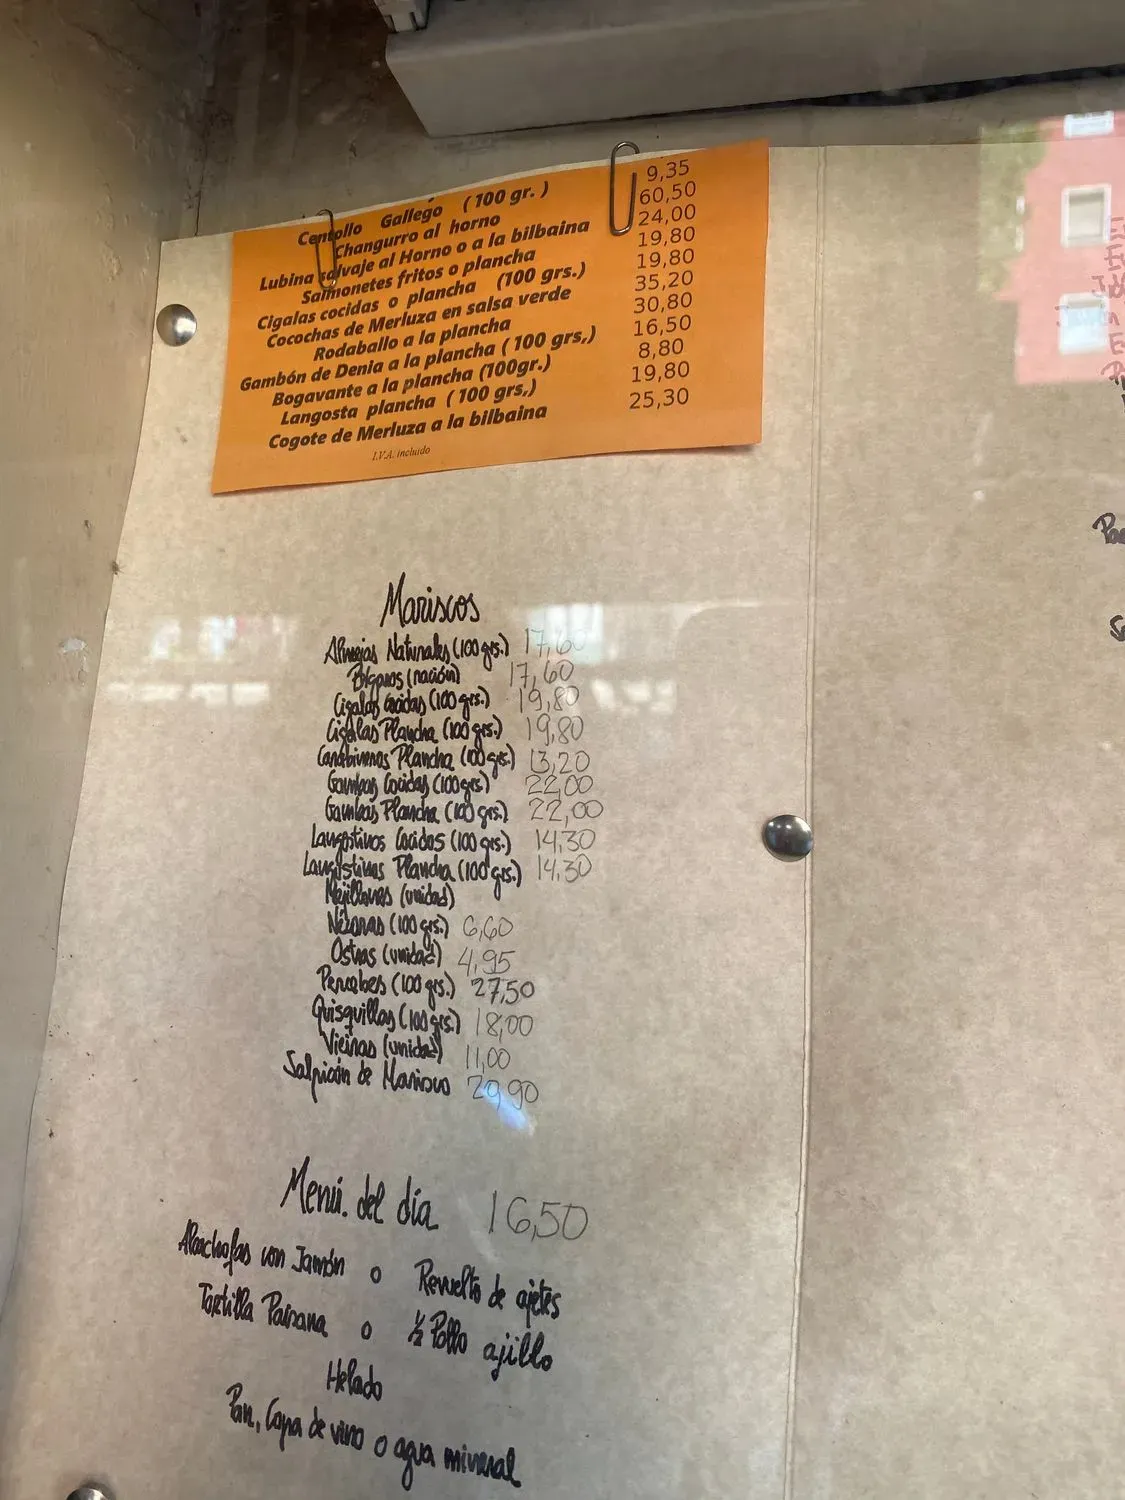 Centollo Gallego (100 gr.) 9,35
Changurro al horno 60,50
Lubina salvaje al Horno o a la bilbaina 24,00
Salmonetes fritos o plancha 19,80
Cigalas cocidas o plancha (100 grs.) 19,80
Cocochas de Merluza en salsa verde 35,20
Rodaballo a la plancha 30,80
Gambón de Denia a la plancha ( 100 grs,) 16,50
Bogavante a la plancha (100gr.) 8,80
Langosta plancha ( 100 grs,) 19,80
Cogote de Merluza a la bilbaina 25,30
I.V.A. incluido
Mariscos
Almejas Naturales (100 grs.) 17,60
Bígaros (ración) 17,60
Cigalas Cocidas (100 grs.) 19,80
Cigalas Plancha (100 grs.) 19,80
Carabineros Plancha (100 grs.) 13,20
Gambas Cocidas (100 grs.) 22,00
Gambas Plancha (100 grs.) 22,00
Langostinos Cocidos (100 grs.) 14,30
Langostinos Plancha (100 grs.) 14,30
Mejillones (unidad)
Nécoras (100 grs.) 6,60
Ostras (unidad) 4,95
Percebes (100 grs.) 27,50
Quisquillas (100 grs.) 18,00
Vieiras (unidad) 11,00
Salpicón de Marisco 29,90
Menú. del día 16,50
Alcachofas con Jamón o Revuelto de ajetes
Tortilla Paisana o ½ Pollo ajillo
Helado
Pan, Copa de vino o agua mineral